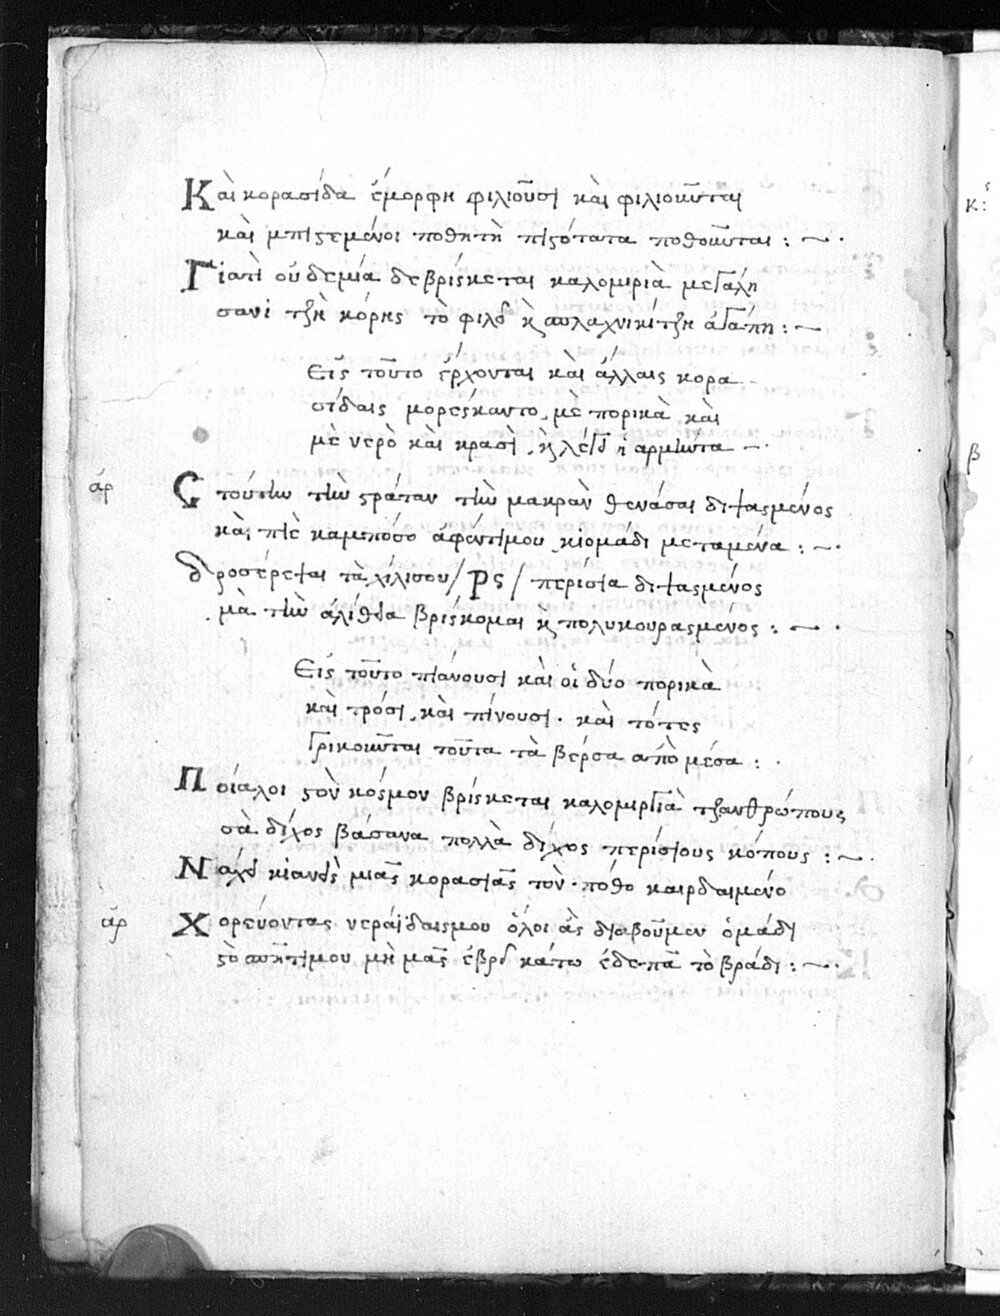 Καὶ κορασίδα έμορφη φιλιοῦσι καὶ φιλιοκοῦνται
καὶ μπιϛεμένοι ποθητὴ πιϛότατα ποθοῦνται : ~ .
Γιατὶ οὐδεμία δεβρίσκεται καλομιριὰ μεγάλη
σανὶ τζὴ κόρης τὸ φιλὶ κ̀ σπλαχνικίτζη ἀγάπη : ~
Εἰς τοῦτο έρχονται καὶ άλλαις κορα
σίδαις μορεσκάντο, μὲ πορικὰ, καὶ
μὲ νερὸ καὶ κρασὶ, κ̀ λέγει ἡ αρμίντα ~ .
άρ
Σ τούτην τὴν ϛράταν τὴν μακρὰν θενάσαι διψασμένος
καὶ πιὲ καμπόσο ἀφέντίμου, κιομάδι μεταμένα : ~ .
δροσέρεψαι τὰ χίλισου / Ρς / περίσια διψασμένος
μὰ τὴν ἀλίθια βρίσκομαι κ̀ πολυκουρασμένος : ~ .
Εἰς τοῦτο πιάνουσι καὶ οἱ δύο πορικὰ
καὶ τρόσι, καὶ πίνουσι . καὶ τότες
γρικοῦνται τοῦτα τὰ βέρσα απὸ μέσα : .
Π οιάλοι ϛὸν κόσμον βρίσκεται καλομιργιὰ τζανθρώπους
σὰ δίχος βάσανα πολλὰ δίχος περίσιους κόπους : ~ .
Ν μιᾶς κορασιᾶς τὸν . πόθο καιρδαιμένο
ἄρ
Χ ορεύοντας νεράϊδαισμου ὅλοι ἂς διαβοῦμεν ὁμάδι
ϛὸ σπήτιμου μὴ μᾶς έβρει κάτω έδεπᾶ τὸ βράδι : ~ .
κ:
β